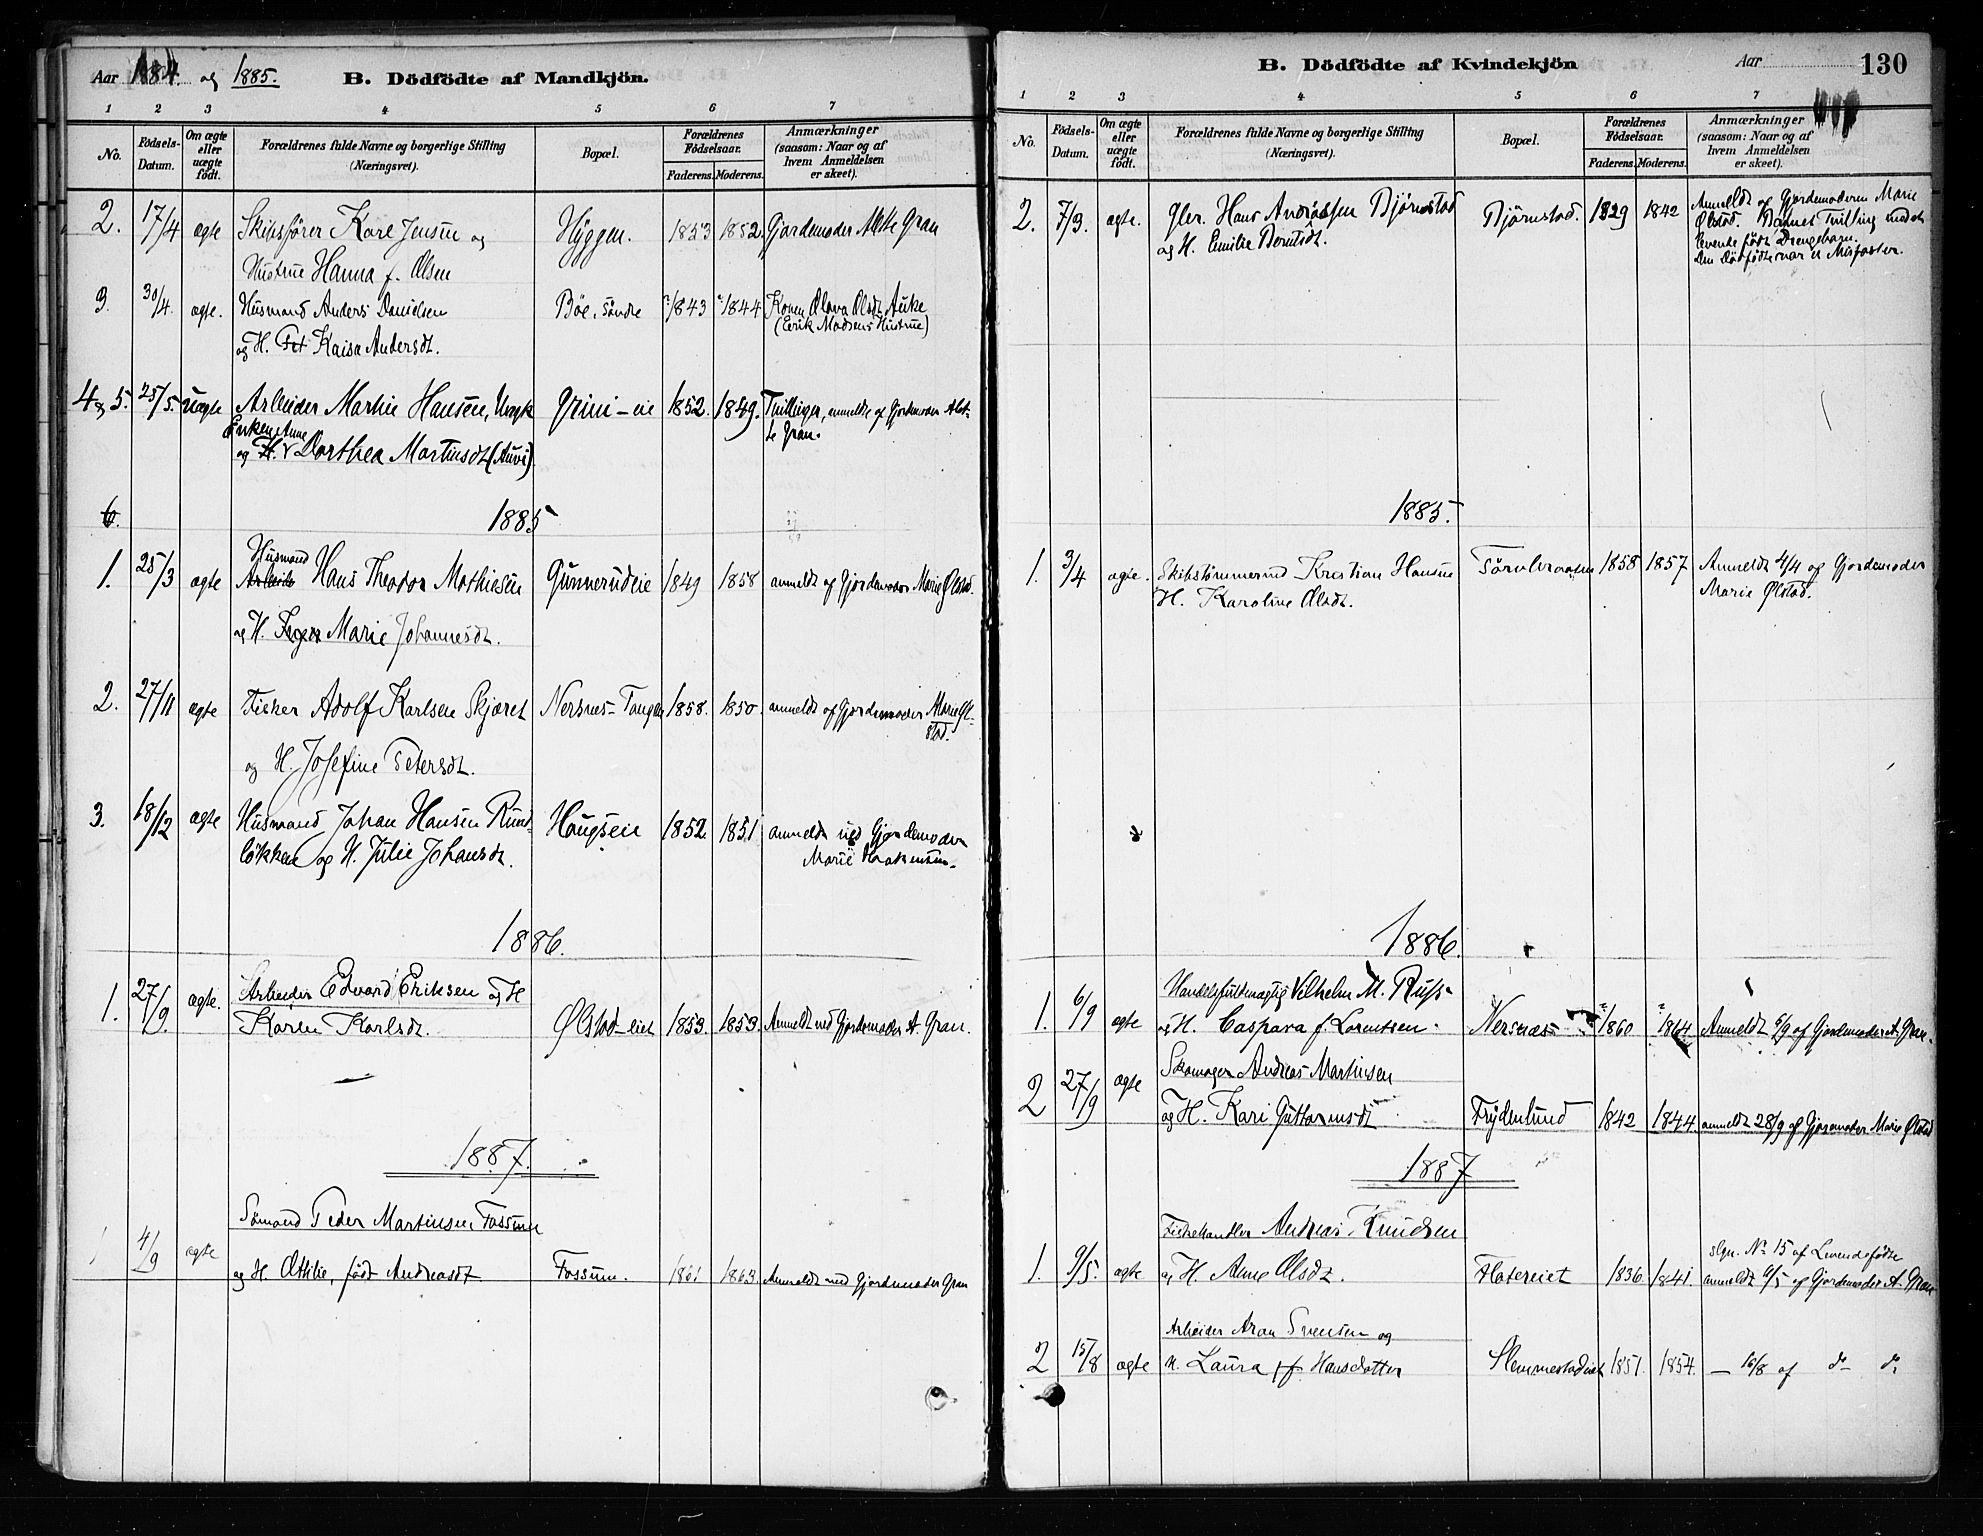 Aar 1884 og 1885. B. Dödfödte af Mandkjön.
1 2 3 4 5 6 7
No. Födsels-Datum. Om ægte eller uægte födt. Forældrenes fulde Navne og borgerlige Stilling (Næringsvei). Bopæl. Forældrenes Födselsaar. Faderens. Moderens. Anmærkninger (saasom: Naar og af hvem Anmeldelsen er skeet).
2. 17/4 ægte Skibsfører Karl Jensen og Hyggen. 1853 1852 Gjordemoder Mette Gran
Hustrue Hanna f. Olsen
3. 30/4 ægte. Husmand Anders Danielsen Böe, söndre 1843 1844 Konen Olava Olsdt. Auke
og H. Kaisa Andersdt. (Eerik Madsens Hustrue)
4 & 5. 25/5. uægte Arbeider Martin Hansen, Ungk Grini-eie 1852. 1849. Tvillinger, anmeldte af Gjordemoder
Enken Anne te Gran.
og Dorthea Martinsdt (Auvi).
6.
1885
1. 25/3 ægte Husmand Hans Theodor Mathiesen Gunnerudeie 1849 1858 anmeldt af Gjordemoder Marie Ølstad.
og H. Marie Johannesdt.
2. 27/11 ægte Fisker Adolf Karlsen Skjæret Nersnes-Tangen 1858. 1850. anmeldt af Gjordemoder Marie Øl-
og H. Josefine Petersdt. stad.
3. 18/12 ægte Husmand Johan Hansen Rund- Haugseie 1852 1851 anmeldt ved Gjordemoder
lökken og H. Julie Johansdt. Marie Haakensen.
1886.
1. 27/9. ægte. Arbeider Edvard Eriksen og H
Karen Karlsdt. Ølstad-eiet 1853. 1853. Anmeldt ved Gjordemoder A. Gran.
1887.
Sömand Peder Martinsen Fossum
1 4/9 ægte og H. Ottilie, född Andreasdt Fossum. 1861 1863. Anmeldt ved Gjordemoder Gran
B. Dödfödte af Kvindekjön Aar 130
1 2 3 4 5 6 7
No. Födsels-Datum. Om ægte eller uægte födt. Forældrenes fulde Navne og borgerlige Stilling (Næringsvei). Bopæl. Forældrenes Födselsaar. Faderens. Moderens. Anmærkninger (saasom: Naar og af hvem Anmeldelsen er skeet).
2. 7/3. ægte. Gbr. Hans Andreassen Björnstad Björnstad. 1829 1842 Anmeldt af Gjordemoderen Marie
og H. Emilie Berntsdt. Ølstad. Barnets Tvilling
levende född Drengebarn.
Den Dödfödte var et Misfoster.
1885.
1. 3/4 ægte. Skibstömmermd Kristian Hansen 1858 1857 Anmeldt 4/4 og Gjordemoder
H. Karoline Olsdt. Marie Ølstad.
1886.
Handelsfuldmægtig Vilhelm M. Russ
1. 6/9 ægte og H. Caspara f. Lorentsen. Nersnæs 1860 1864 Anmeldt 6/9 af Gjordemoder A. Gran.
Skomager Andreas Martinsen
2 27/9 ægte og H. Kari Guttormsdt Frydenlund 1842 1844. anmeldt 28/9 af Gjordmoder Marie Ølstad
1887
Fiskehandler Andreas Knudsen
slgn. No 15 af Levendefödte
1. 9/5. ægte og H. Anne Olsdt. 1836. 1841. anmeldt 6/5 af Gjordemoder A. Gran
Arbeider Aron Svensen og
2 15/8 ægte H. Laura f. Hansdatter Slemmestadeiet 1851. 1854. — 16/8 af do do